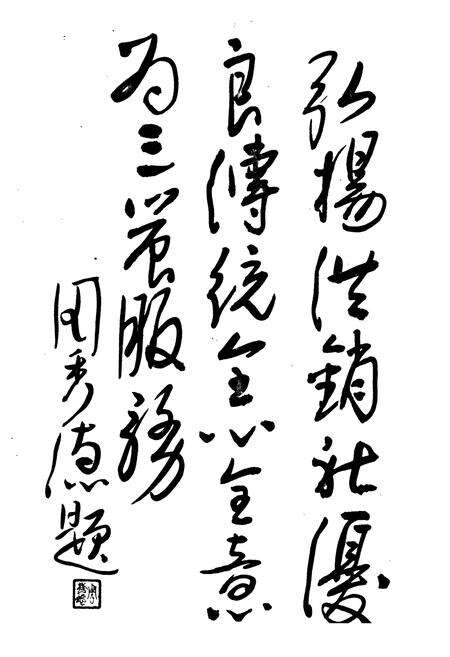 弘揚供銷社優
良傳統全心全意
为三农服務
周秀德題